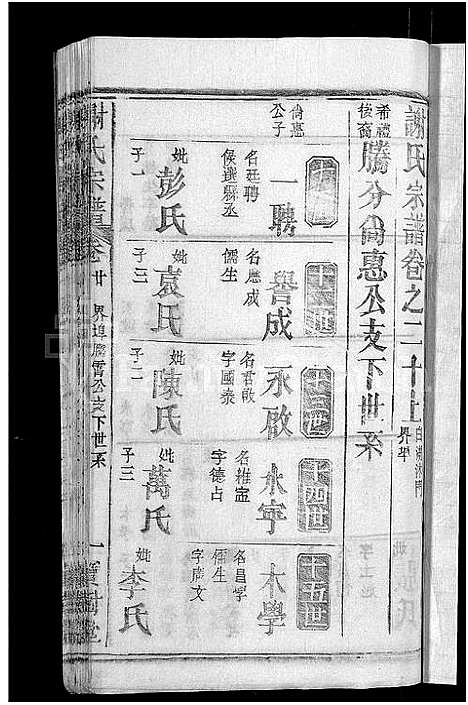 謝氏宗譜卷之二十上
界埠
希禮後裔
騰分尚惠公支下世系
尚惠公子
一聘
名廷聘
候選縣丞
妣
彭氏
子一
譽成
名應成
儒生
妣
袁氏
子三
永啟
名君啟
字國泰
妣
陳氏
子二
十四世
永寧
名維寧
字德占
妣
萬氏
子三
十五世
本學
名昌學
儒生
字廣文
妣
李氏
謝氏宗譜
卷廿
界埠騰霄公支下世系
一
寶樹堂